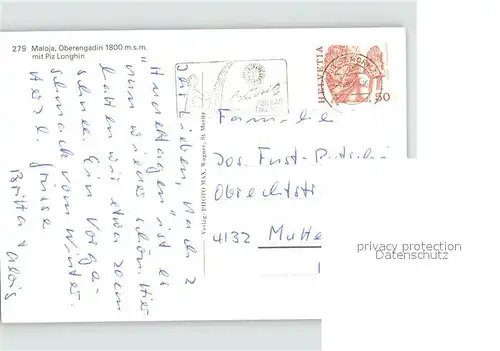 279 Maloja, Oberengadin 1800 m.s.m.
mit Piz Longhin
Ihr Lieben, nach 2
"Hundstagen" ist es
nun wieder schön. Hier
hatten wir etwa 20 cm
Schnee. Ein Vorge-
schmack vom Winter.
Herzl. Grüsse
Britta + Alois
Verlag: PHOTO MAX, Wagner, St. Moritz
HELVETIA
50
Familie
Jos. Furst-
Obrechtstr
4132 Mutte
privacy protection
Datenschutz